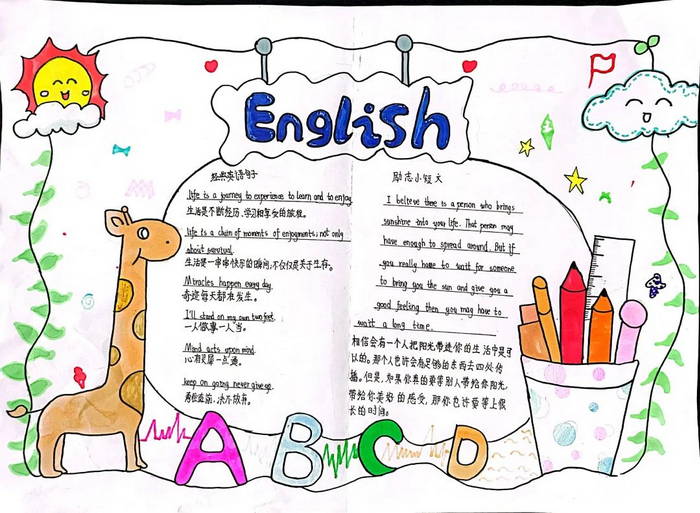 English
经典英语句子
life is a journey to experience to learn and to enjoy
生活是不断经历、学习和享受的旅程。
life is a chain of moments of enjoyments, not only
about survival.
生活是一串串快乐的瞬间,不仅仅是关于生存。
Miracles happen every day.
奇迹每天都在发生。
I'll stand on my own two feet.
一人做事一人当。
Mand acts upon mind
心有灵犀一点通。
keep on going never give up.
勇往直前,决不放弃。
励志小短文
I believe there is a person who brings
sunshine into your life. That person may
have enough to spread around. But if
you really have to wait for someone
to bring you the sun and give you a
good feeling then you may have to
wait a long time.
相信会有一个人把阳光带进你的生活中是可
以的。那个人也许会有足够的东西去四处传
播。但是,如果你真的要等别人带给你阳光,
带给你美好的感受,那你也许要等上很
长的时间。
A B C D